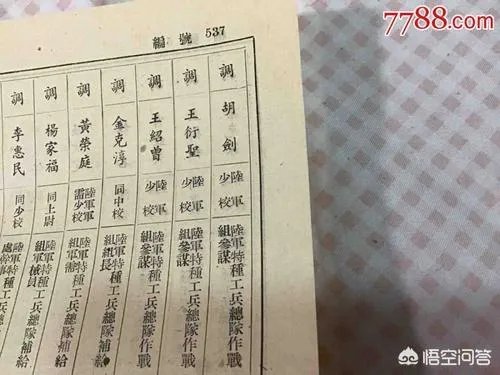 7788.com
編號 537
調 胡劍 陸軍少校 陸軍特種工兵總隊作戰組參謀
調 王衍聖 陸軍少校 陸軍特種工兵總隊作戰組參謀
調 王紹曾 陸軍少校 陸軍特種工兵總隊作戰組參謀
調 金克淳 同中校 陸軍特種工兵總隊補給組組長
調 黃榮庭 陸軍需少校 陸軍特種工兵總隊補給組軍
調 楊家福 同上尉 陸軍特種工兵總隊補給組軍械員
調 李惠民 同少校 陸軍特種工兵總隊
悟空问答